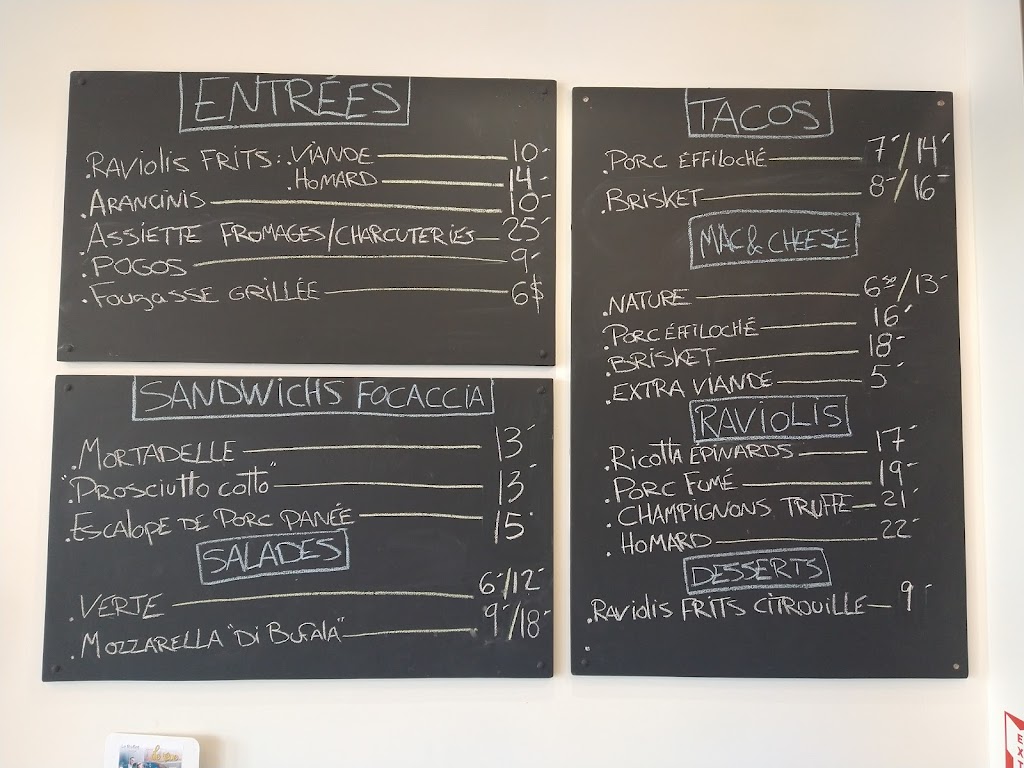 ENTRÉES
.RAVIOLIS FRITS: .VIANDE 10-
.HOMARD 14-
.ARANCINIS 10-
.ASSIETTE FROMAGES/CHARCUTERIES 25-
.POGOS 9-
.FOUGASSE GRILLÉE 6$
SANDWICHS FOCACCIA
.MORTADELLE 13-
."PROSCIUTTO COTTO" 13-
.ESCALOPE DE PORC PANÉE 15-
SALADES
.VERTE 6-/12-
.MOZZARELLA "DI BUFALA" 9-/18-
TACOS
.PORC EFFILOCHÉ 7-/14-
.BRISKET 8-/16-
MAC & CHEESE
.NATURE 650/13-
.PORC EFFILOCHÉ 16-
.BRISKET 18-
.EXTRA VIANDE 5-
RAVIOLIS
.RICOTTA ÉPINARDS 17-
.PORC FUMÉ 19-
.CHAMPIGNONS TRUFFE 21-
.HOMARD 22-
DESSERTS
.RAVIOLIS FRITS CITROUILLE 9-